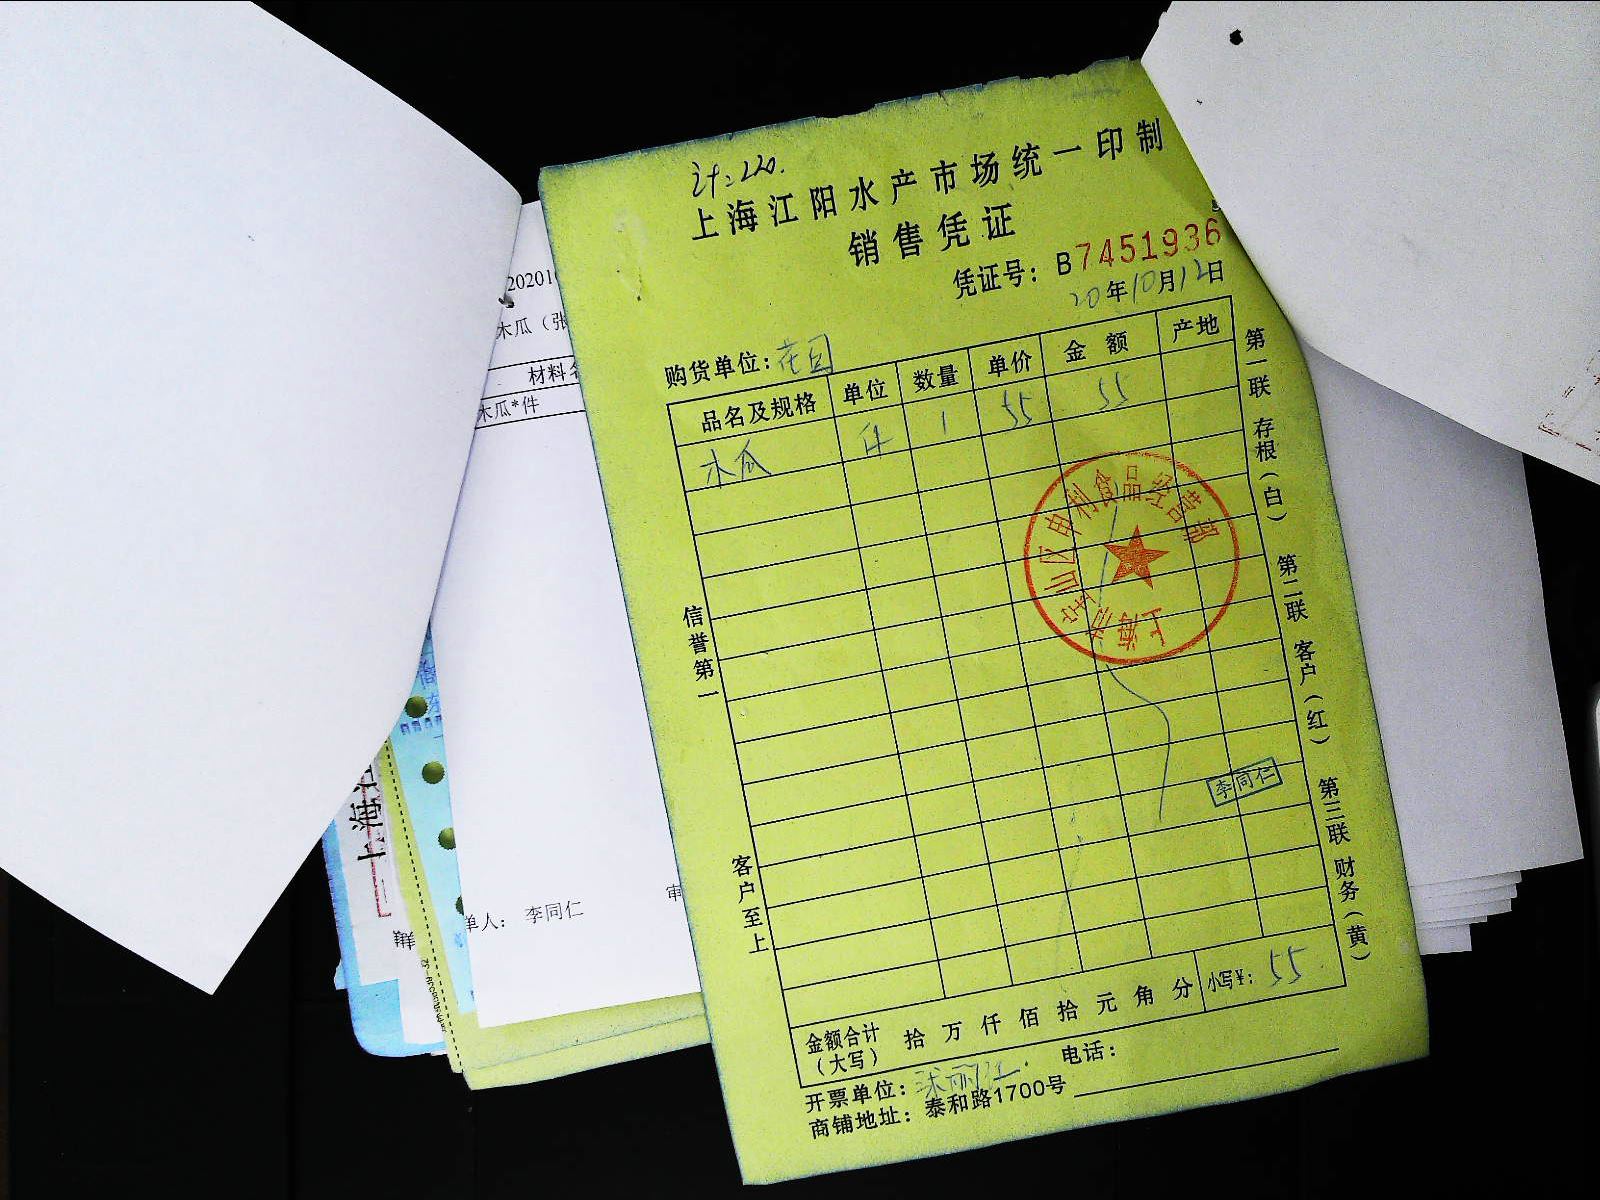 计:220.
上海江阳水产市场统一印制
销售凭证
凭证号：B7451936
20年10月12日
购货单位：花园
品名及规格 单位 数量 单价 金额 产地
木瓜 件 1 55 55
信誉第一
客户至上
第一联 存根（白） 第二联 客户（红） 第三联 财务（黄）
上海市宝山区申利食品经营部
李同仁
金额合计（大写） 拾 万 仟 佰 拾 元 角 分 小写¥: 55
开票单位：
电话：
商铺地址：泰和路1700号
202010
木瓜（张
材料名
木瓜*件
单人： 李同仁
审
上海江